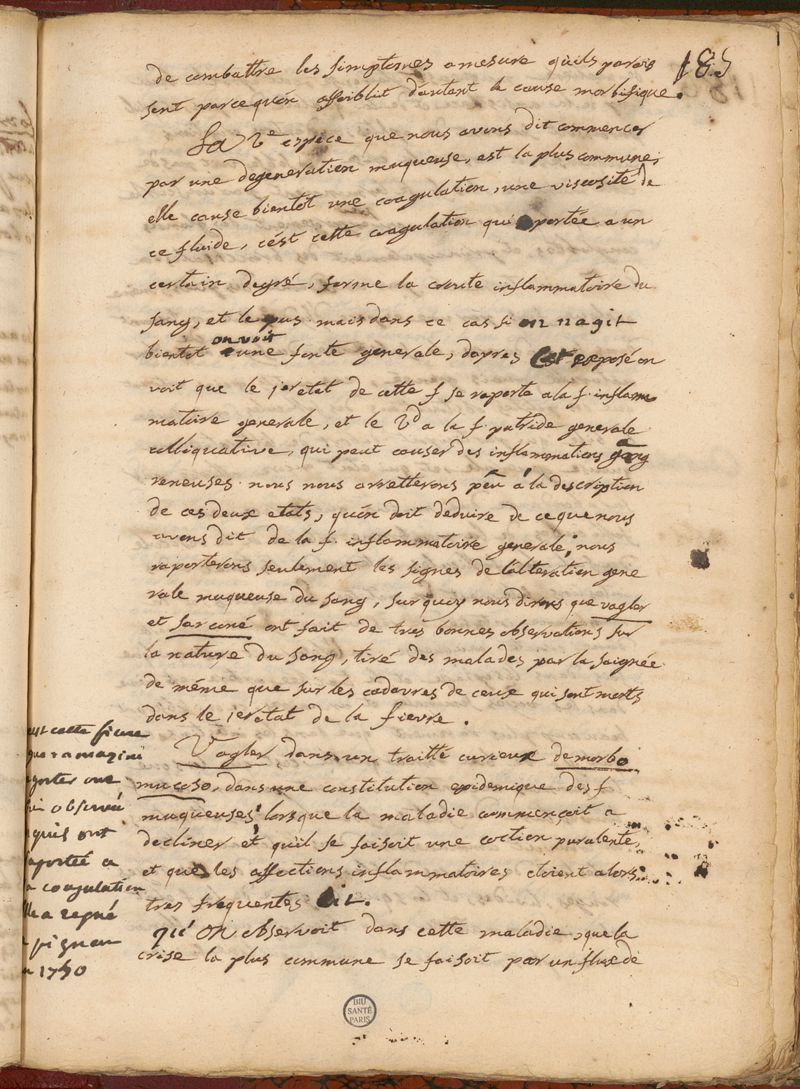 185
de combattre les simptomes a mesure quils parois
sent parcequén affoiblit dautant la cause morbifique.
La 2e espece que nous avons dit commencer
par une degeneration muqueuse, est la plus commune,
elle cause bientot une coagulation, une viscosité de
ce fluide, cést cette coagulation qui portée a un
certain degré, forme la croute inflammatoire du
sang, et le pus mais dans ce cas si on nagit
bientot on voit une fonte generale, dapres cet exposé on
voit que le 1er etat de cette f se raporte a la f. inflam
matoire generale, et le 2d a la f. putride generale
colliquative, qui peut causer des inflammations gang
reneuses. nous nous arretterons peu á la description
de ces deux etats, quén doit déduire de ce que nous
avons dit de la f. inflammatoire generale; nous
raporterons seulement les signes de lalteration gene
rale muqueuse du sang, sur quoy nous dirons que vagler
et sarconé ont fait de tres bonnes observations sur
la nature du sang, tiré des malades par la saignée
de même que sur les cadavres de ceux qui sont morts
dans le 1er etat de la fievre.
Vagler, dans un traitté curieux de morbo
mucoso, dans une constitution epidemique des f
muqueuses lorsque la maladie commencoit a
decliner et quil se faisoit une coction purulente,
et que les affections inflammatoires etoient alors
tres frequentes dit.
qu' on observoit dans cette maladie, que la
crise la plus commune se faisoit par un flux de
est cette fievre
que ramazini
observé
quils ont
aportée a
coagulation
a regné
1750
BIU
SANTÉ
PARIS